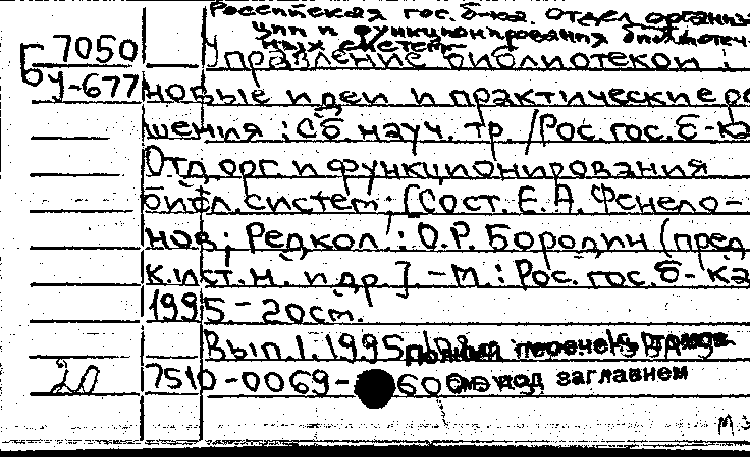 Российская гос. б-ка. Отдел организа
ции и функционирования библиотеч
ных систем
7050
Управление библиотекой :
Бу-677
новые идеи и практические ре
шения : Сб. науч. тр. / Рос. гос. б-ка
Отд. орг. и функционирования
библ. систем; [Сост. Е. А. Фенело-
нов; Редкол.: О.Р. Бородин (пред
к.ист.н. и др.]. - М.: Рос. гос. б-ка
1995. - 20см.
Вып. 1. 1995. Полный перечень
20
7510-0069- 600 под заглавием
М